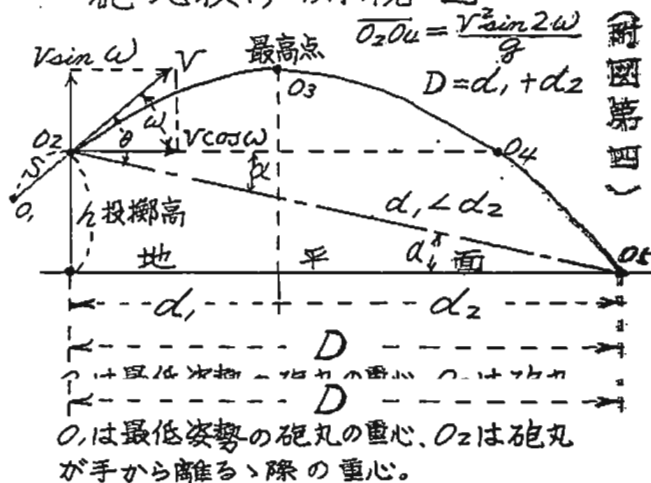 O₂O₄ = V²sin2ω/g
(附図第四)
Vsin ω
V
最高点
D=d₁+d₂
O₃
O₂
θ
ω
Vcosω
α
O₄
S
O₁
h 投擲高
d₁<d₂
α
地 平 面
O₅
d₁
d₂
D
D
O₁は最低姿勢の砲丸の重心、O₂は砲丸
が手から離るゝ際の重心。